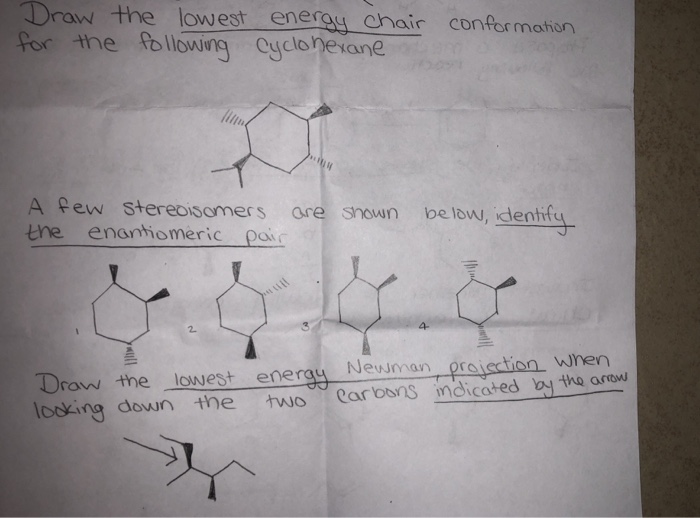 Draw the lowest energy chair conformation
for the following cyclohexane
A few stereoisomers are shown below, identify
the enantiomeric pair
1 2 3 4
Draw the lowest energy Newman projection when
looking down the two carbons indicated by the arrow